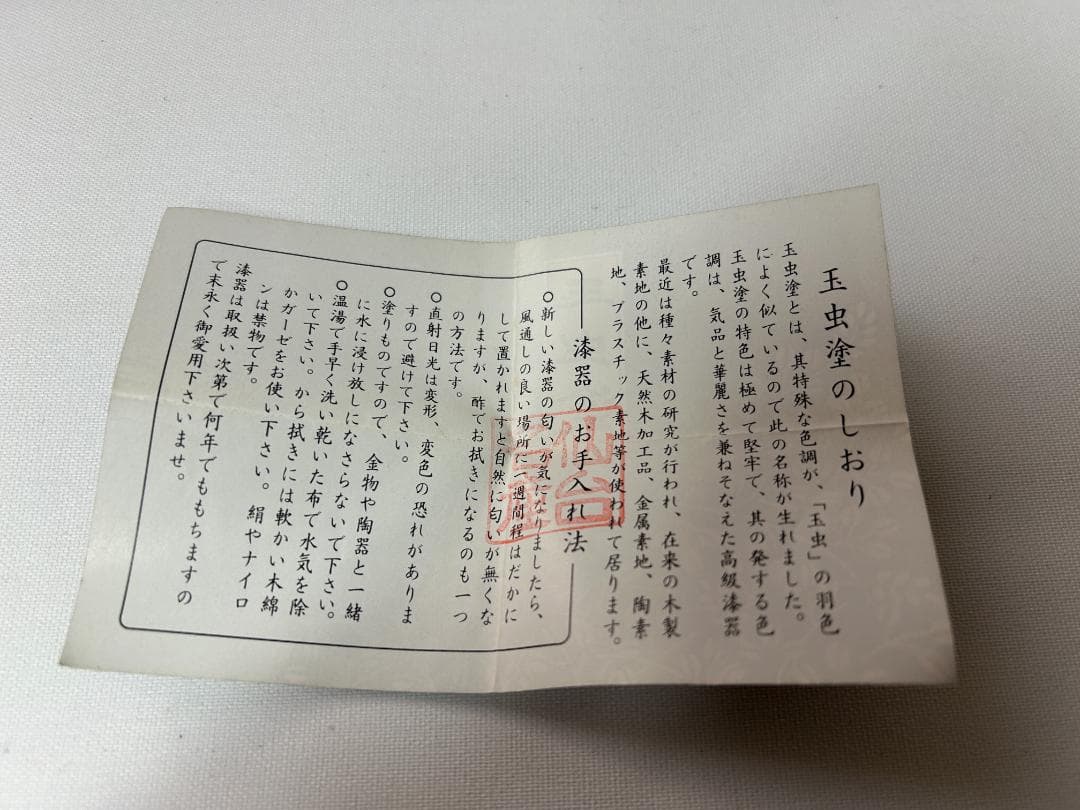 玉虫塗のしおり
玉虫塗とは、其特殊な色調が、「玉虫」の羽色
によく似ているので此の名称が生れました。
玉虫塗の特色は極めて堅牢で、其の発する色
調は、気品と華麗さを兼ねそなえた高級漆器
です。
最近は種々素材の研究が行われ、在来の木製
素地の他に、天然木加工品、金属素地、陶素
地、プラスチック素地等が使われて居ります。
漆器のお手入れ法
○新しい漆器の匂いが気になりましたら、
風通しの良い場所に一週間程はだかに
して置かれますと自然に匂いが無くな
りますが、酢でお拭きになるのも一つ
の方法です。
○直射日光は変形、変色の恐れがありま
すので避けて下さい。
○塗りものですので、金物や陶器と一緒
に水に浸け放しになさらないで下さい。
○温湯で手早く洗い乾いた布で水気を除
いて下さい。から拭きには軟かい木綿
かガーゼをお使い下さい。絹やナイロ
ンは禁物です。
漆器は取扱い次第で何年でももちますの
で末永く御愛用下さいませ。
仙台